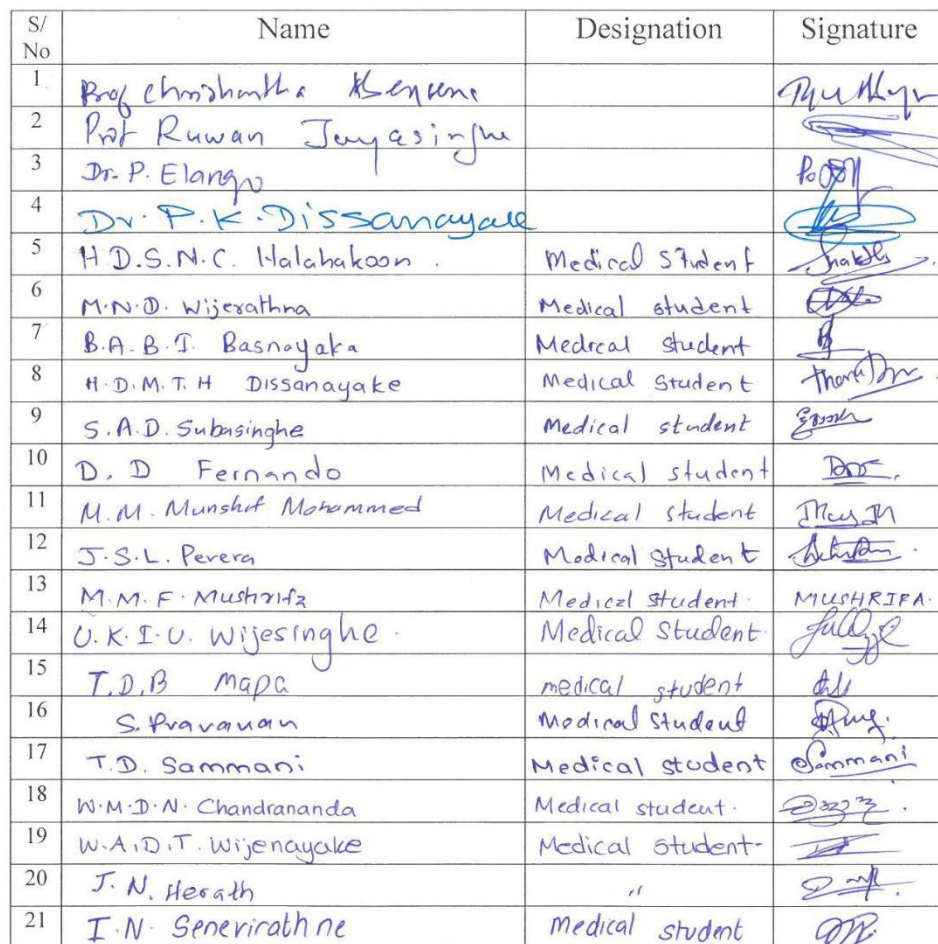 S/No Name Designation Signature
1. Prof Chrishantha Abeysena
2 Prof Ruwan Jayasinghe
3 Dr. P. Elango
4 Dr. P. K. Dissanayake
5 H.D.S.N.C. Halahakoon. Medical Student
6 M.N.D. Wijerathna Medical student
7 B.A.B.I. Basnayaka Medical student
8 H.D.M.T.H Dissanayake Medical Student
9 S.A.D. Subasinghe Medical student
10 D. D Fernando Medical student
11 M.M. Munshif Mohammed Medical student
12 J.S.L. Perera Medical Student
13 M.M.F. Mushrifa Medical Student. MUSHRIFA.
14 U.K.I.U. Wijesinghe. Medical Student.
15 T.D.B Mapa medical student
16 S. Pravanan Medical Student
17 T.D. Sammani Medical student Sammani
18 W.M.D.N. Chandrananda Medical student.
19 W.A.D.T. Wijenayake Medical Student-
20 J.N. Herath "
21 I.N. Senevirathne Medical student